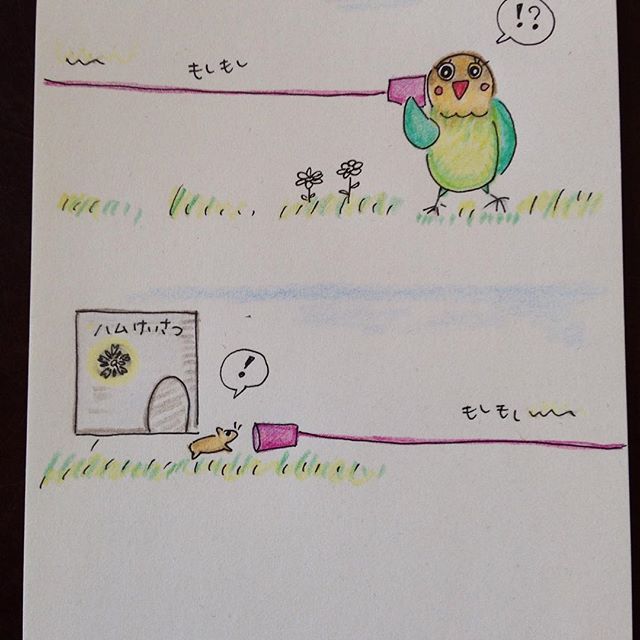 !?
もしもし
ハムけいさつ
!
もしもし